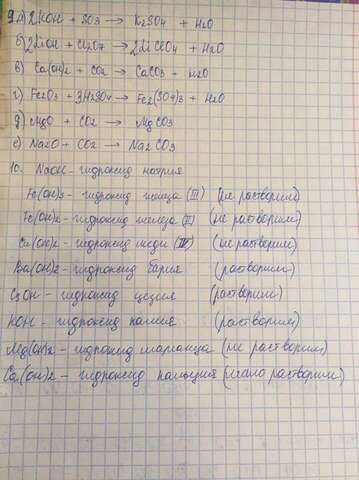 9. а) 2KOH + SO3 → K2SO4 + H2O
б) 2LiOH + Cl2O7 → 2LiClO4 + H2O
в) Ca(OH)2 + CO2 → CaCO3 + H2O
г) Fe2O3 + 3H2SO4 → Fe2(SO4)3 + H2O
д) MgO + CO2 → MgCO3
е) Na2O + CO2 → Na2CO3
10. NaOH - гидроксид натрия
Fe(OH)3 - гидроксид железа (III) (не растворим)
Fe(OH)2 - гидроксид железа (II) (не растворим)
Cu(OH)2 - гидроксид меди (не растворим)
Ba(OH)2 - гидроксид бария (растворим)
CsOH - гидроксид цезия (растворим)
KOH - гидроксид калия (растворим)
Mg(OH)2 - гидроксид марганца (не растворим)
Ca(OH)2 - гидроксид кальция (мало растворим)